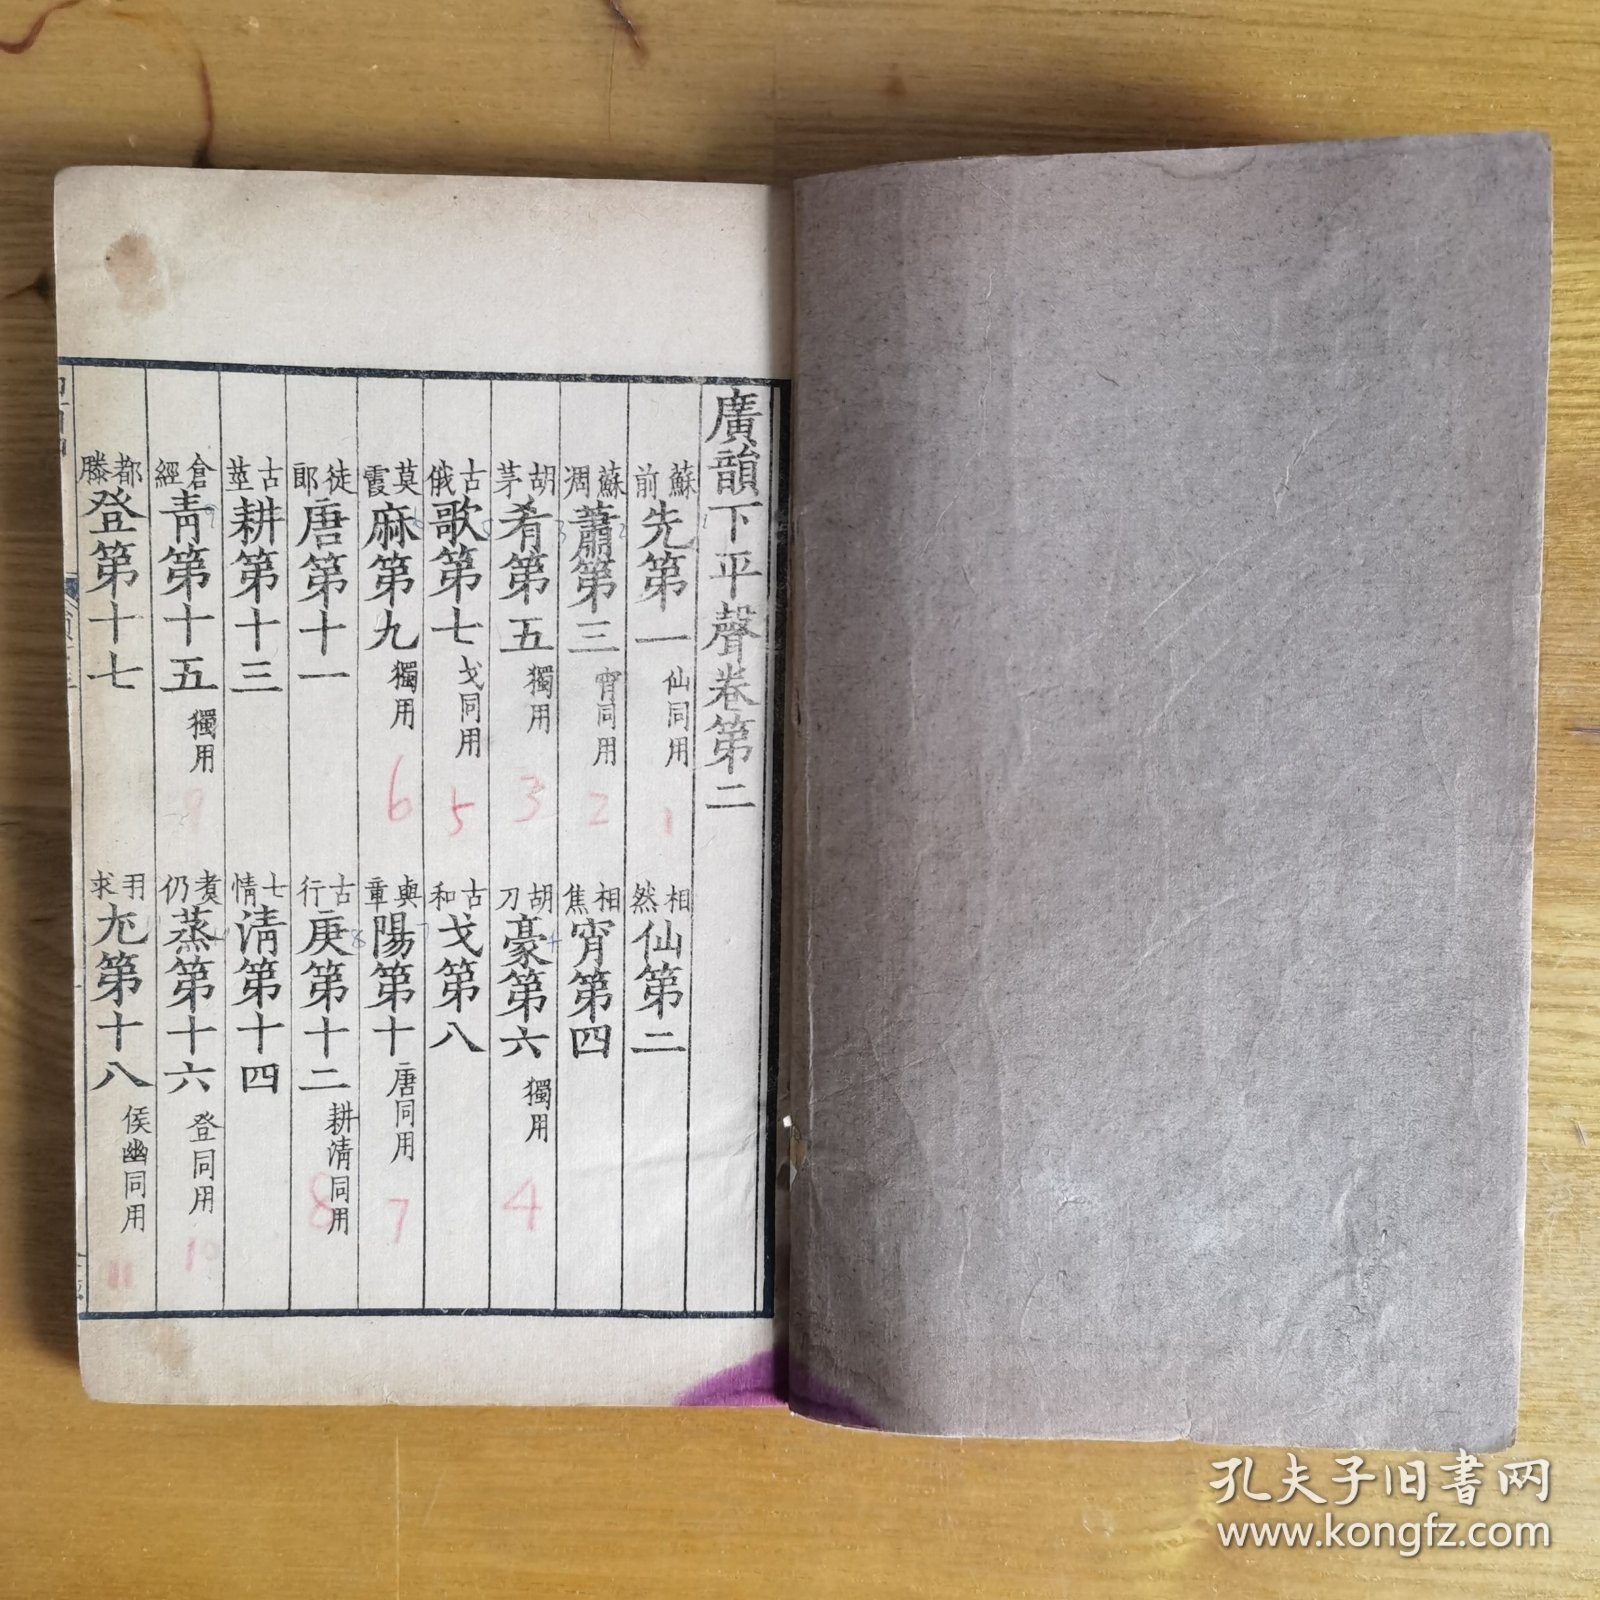 廣韻下平聲卷第二
蘇前先第一仙同用
相然仙第二
蘇凋蕭第三宵同用
相焦宵第四
胡茅肴第五獨用
胡刀豪第六獨用
古俄歌第七戈同用
古和戈第八
莫霞麻第九獨用
與章陽第十唐同用
徒郎唐第十一
古行庚第十二耕清同用
古莖耕第十三
七情清第十四
倉經青第十五獨用
煑仍蒸第十六登同用
都滕登第十七
求尤第十八侯幽同用
1
2
3
4
5
6
7
8
9
10
11
孔夫子旧书网
www.kongfz.com